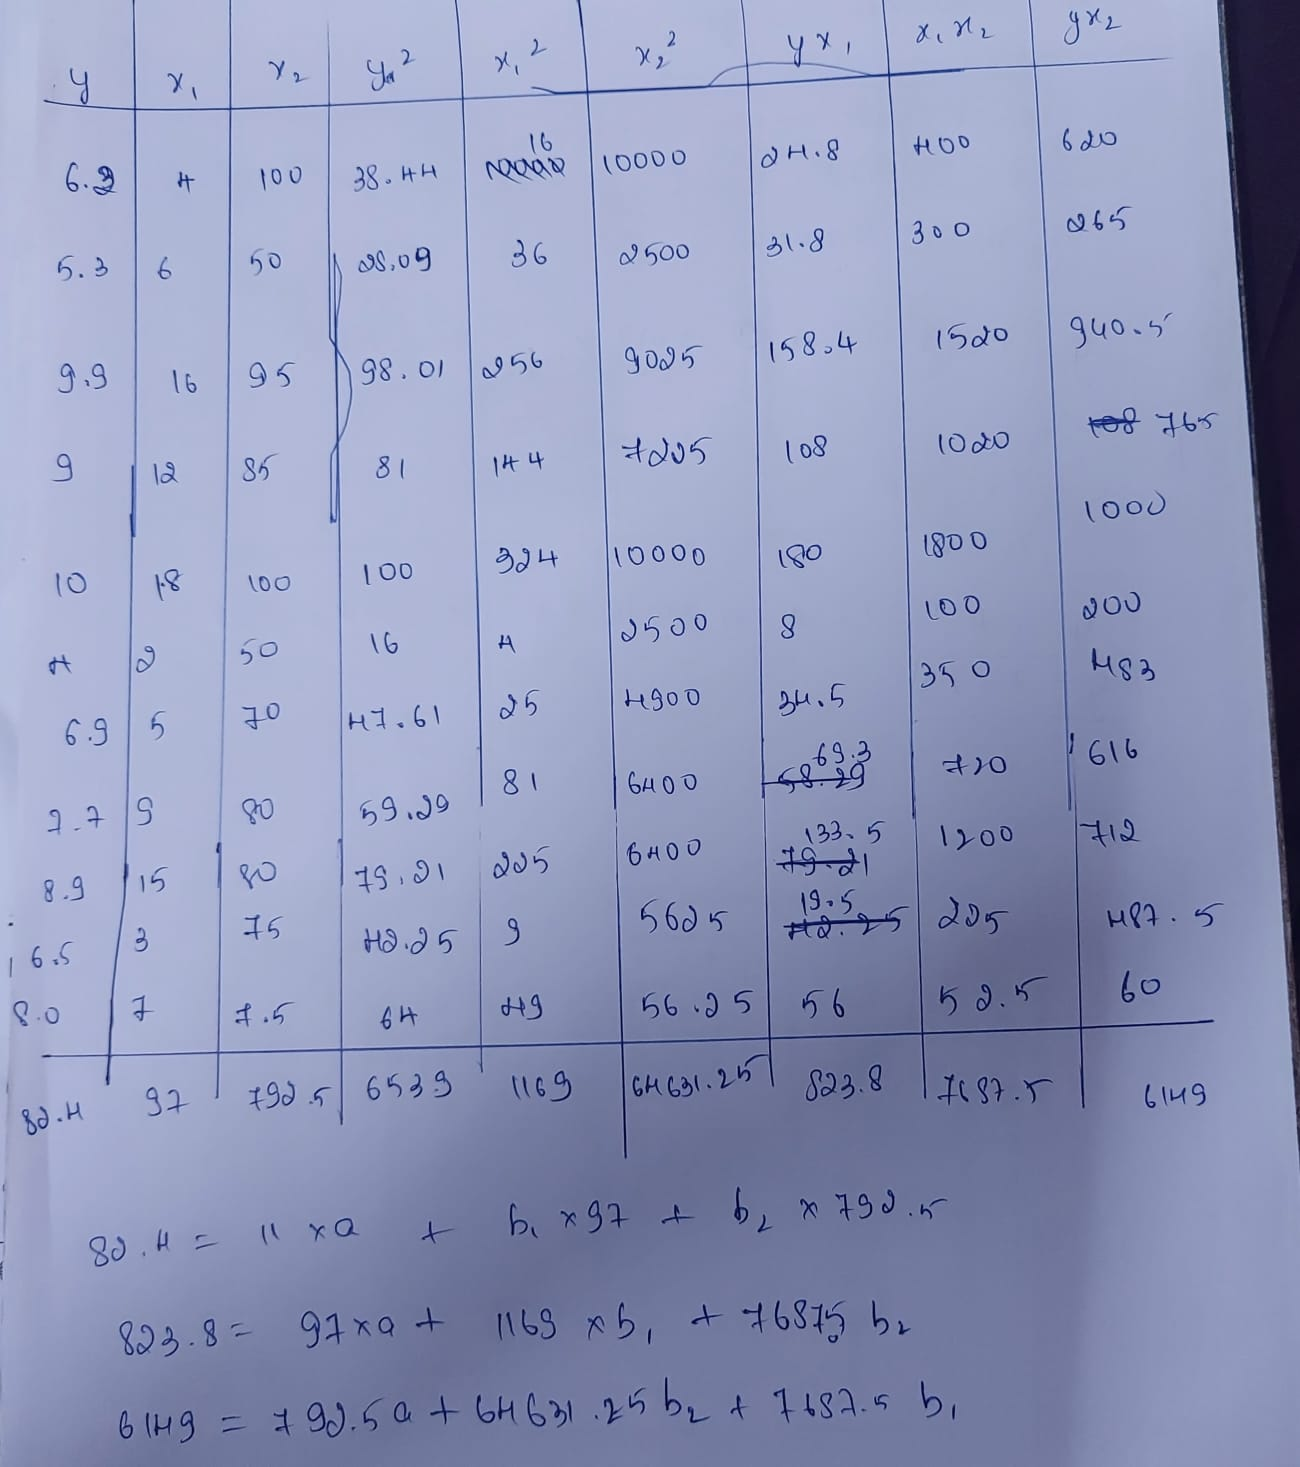 y x₁ x₂ y² x₁² x₂² yx₁ x₁x₂ yx₂
6.2 4 100 38.44 16 10000 24.8 400 620
5.3 6 50 28.09 36 2500 31.8 300 265
9.9 16 95 98.01 256 9025 158.4 1520 940.5
9 12 85 81 144 7225 108 1020 108 765
10 18 100 100 324 10000 180 1800 1000
4 2 50 16 4 2500 8 100 200
6.9 5 70 47.61 25 4900 34.5 350 483
7.7 9 80 59.29 81 6400 58.29 69.3 720 616
8.9 15 80 79.21 225 6400 79.21 133.5 1200 712
6.5 3 75 42.25 9 5625 42.25 19.5 225 487.5
8.0 7 7.5 64 49 56.25 56 52.5 60
82.4 97 792.5 6539 1169 64631.25 823.8 7687.5 6149
82.4 = 11 x a + b₁ x 97 + b₂ x 792.5
823.8 = 97 x a + 1169 x b₁ + 7687.5 b₂
6149 = 792.5 a + 64631.25 b₂ + 7687.5 b₁